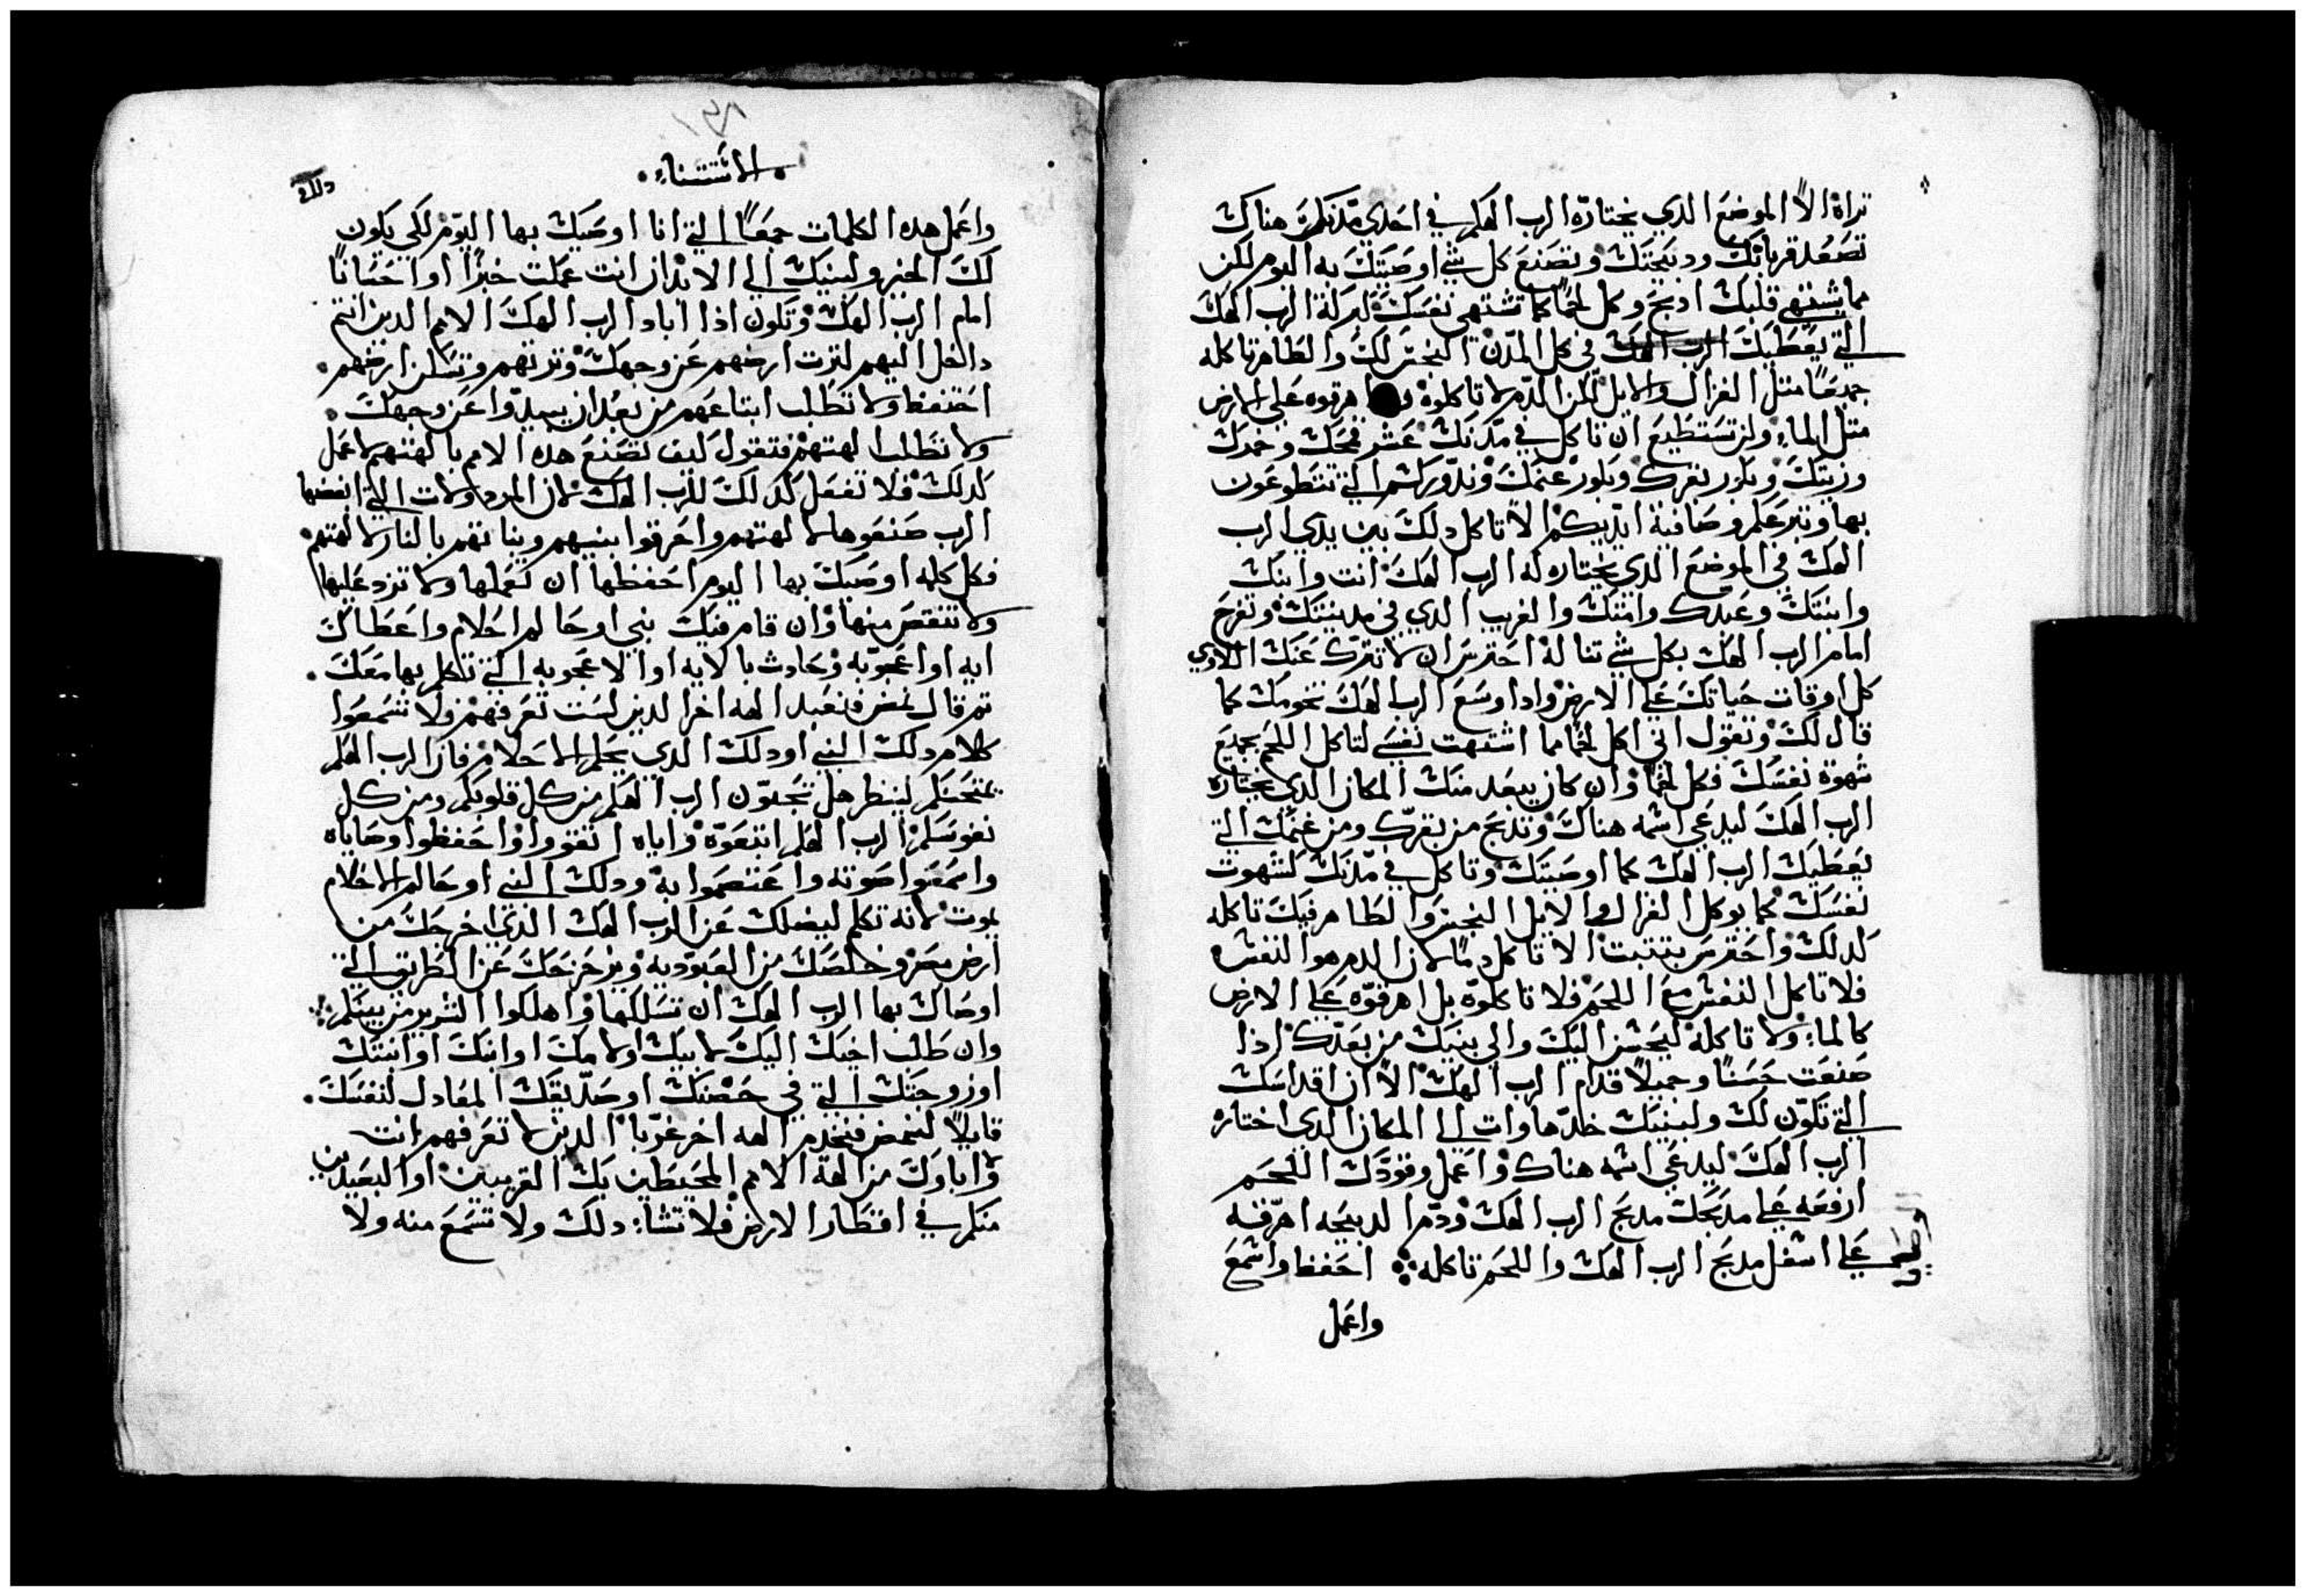 تراه الا الموضع الدي يختاره الرب الهكم في احدي مدنكم هناك
تصعد قربانك ودبيحتك وتصنع كل شي اوصيتك به اليوم لكن
مما يشتهي قلبك ادبح وكل لحما كما تشتهي نفسك لبركة الرب الهك
التي يعطيك الرب الهك في كل المدن النجس لك والطاهر تاكله
جميعا متل الغزال والايل لكن الدم لا تاكلوه اهرقوه علي الارض
متل الماء ولن تستطيع ان تاكل في مدنك عشر قمحك وخمرك
وزيتك وبكور بقرك وبكور غنمك وندوركم التي تتطوعون
بها وتبرعكم وصافية ايديكم الا تاكل دلك بين يدي الرب
الهك في الموضع الدي يختاره له الرب الهك انت وابنك
وابنتك وعبدك وامتك والغريب الدي في مدينتك وتفرح
امام الرب الهك بكل شي تناله احترس ان لا تترك عنك اللاوي
كل اوقات حياتك علي الارض وادا وسع الرب الهك تخومك كما
قال لك وتقول اني اكل لحما مما اشتهت نفسي لتاكل اللحم بجميع
شهوة نفسك فكل لحما وان كان يبعد منك المكان الدي يختاره
الرب الهك ليدعي اسمه هناك وتدبح من بقرك ومن غنمك التي
يعطيك الرب الهك كما اوصيتك وتاكل في مدنك كشهوت
نفسك كما يوكل الغزال والايل النجس والطاهر فيك تاكله
كدلك واحترس بتتبت الا تاكل دما لان الدم هو النفس
فلا تاكل النفس مع اللحم فلا تاكلوه بل اهرقوه علي الارض
كالماء ولا تاكله ليحسن اليك والي بنيك من بعدك ادا
صنعت حسنا وجميلا قدام الرب الهك الا ان اقداسك
التي تكون لك ولبنيك خدها وات الي المكان الدي اختاره
الرب الهك ليدعي اسمه هناك واعمل وقودك اللحم
ارفعه علي مدبحك مدبح الرب الهك ودم الدبيحه اهرقه
علي اسفل مدبح الرب الهك واللحم تاكله احفظ واسمع
واعمل
الاستتناء
واعمل هده الكلمات جمعا التي انا اوصيك بها اليوم لكي يكون
لك الخير ولبنيك الي الابد ان انت عملت خيرا او احسانا
امام الرب الهك وتكون ادا اباد الرب الهك الامم الدين انتم
داخل اليهم لترت ارضهم عن وجهك وترتهم وتسكن ارضهم
احتفظ ولا تطلب اتباعهم من بعد ان يبيدوا عن وجهك
ولا تطلب الهتهم فتقول كيف تصنع هده الامم بالهتهم لاعمل
كدلك فلا تفعل كدلك للرب الهك لان المردولات التي ابغضها
الرب صنعوها لالهتهم واحرقوا بنيهم وبناتهم بالنار لالهتهم
فكل كلمه اوصيك بها اليوم احفظها ان تعملها ولا تزد عليها
ولا تنقص منها وان قام فيك نبي او حالم احلام واعطاك
ايه او اعجوبه وحادت بالايه او الاعجوبه التي تكلم بها معك
تم قال لنمض فنعبد الهه اخر الدين لست تعرفهم ولا تسمعوا
كلام دلك النبي او دلك الدي يحلم الاحلام فان الرب الهكم
يمتحنكم لينظر هل تحبون الرب الهكم من كل قلوبكم ومن كل
نفوسكم الرب الهكم اتبعوه واياه اتقوا واحفظوا وصاياه
واسمعوا صوته واعتصموا به ودلك النبي او حالم الاحلام
يموت لانه تكلم ليضلك عن الرب الهك الدي اخرجك من
ارض مصر وخلصك من العبوديه ويزحزحك عن الطريق التي
اوصاك بها الرب الهك ان تسلكها واهلكوا الشرير من بينكم
وان طلب اخيك اليك لابيك او لامك او ابنك او ابنتك
او زوجتك التي في حضنك او صديقك المعادل لنفسك
قايلا لنمض فنخدم الهه اخر غربا الدين لا تعرفهم انت
واباوك من الهة الامم المحيطين بك القريبين او البعيدين
منكم في اقطار الارض فلا تشا دلك ولا تسمع منه ولا